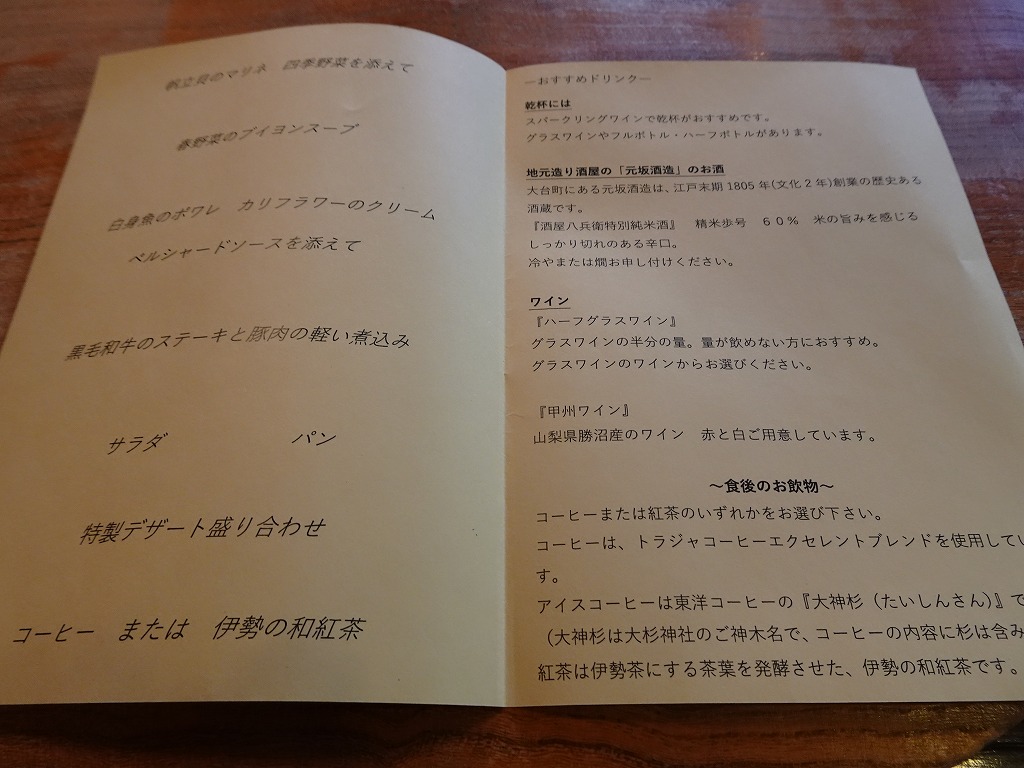 帆立貝のマリネ　四季野菜を添えて
春野菜のブイヨンスープ
白身魚のポワレ　カリフラワーのクリーム
ペルシャードソースを添えて
黒毛和牛のステーキと豚肉の軽い煮込み
サラダ　パン
特製デザート盛り合わせ
コーヒー　または　伊勢の和紅茶
―おすすめドリンク―
乾杯には
スパークリングワインで乾杯がおすすめです。
グラスワインやフルボトル・ハーフボトルがあります。
地元造り酒屋の「元坂酒造」のお酒
大台町にある元坂酒造は、江戸末期1805年(文化2年)創業の歴史ある
酒蔵です。
『酒屋八兵衛特別純米酒』　精米歩号　60%　米の旨みを感じる
しっかり切れのある辛口。
冷やまたは燗お申し付けください。
ワイン
『ハーフグラスワイン』
グラスワインの半分の量。量が飲めない方におすすめ。
グラスワインのワインからお選びください。
『甲州ワイン』
山梨県勝沼産のワイン　赤と白ご用意しています。
～食後のお飲物～
コーヒーまたは紅茶のいずれかをお選び下さい。
コーヒーは、トラジャコーヒーエクセレントブレンドを使用してい
す。
アイスコーヒーは東洋コーヒーの『大神杉（たいしんさん）』で
（大神杉は大杉神社のご神木名で、コーヒーの内容に杉は含み
紅茶は伊勢茶にする茶葉を発酵させた、伊勢の和紅茶です。